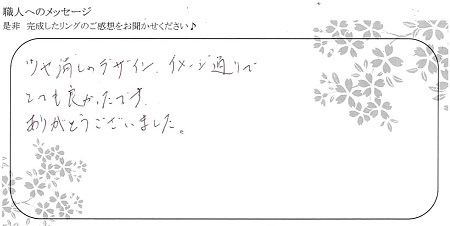 職人へのメッセージ
是非 完成したリングのご感想をお聞かせください♪
ツヤ消しのデザイン、イメージ通りで
とても良かったです。
ありがとうございました。